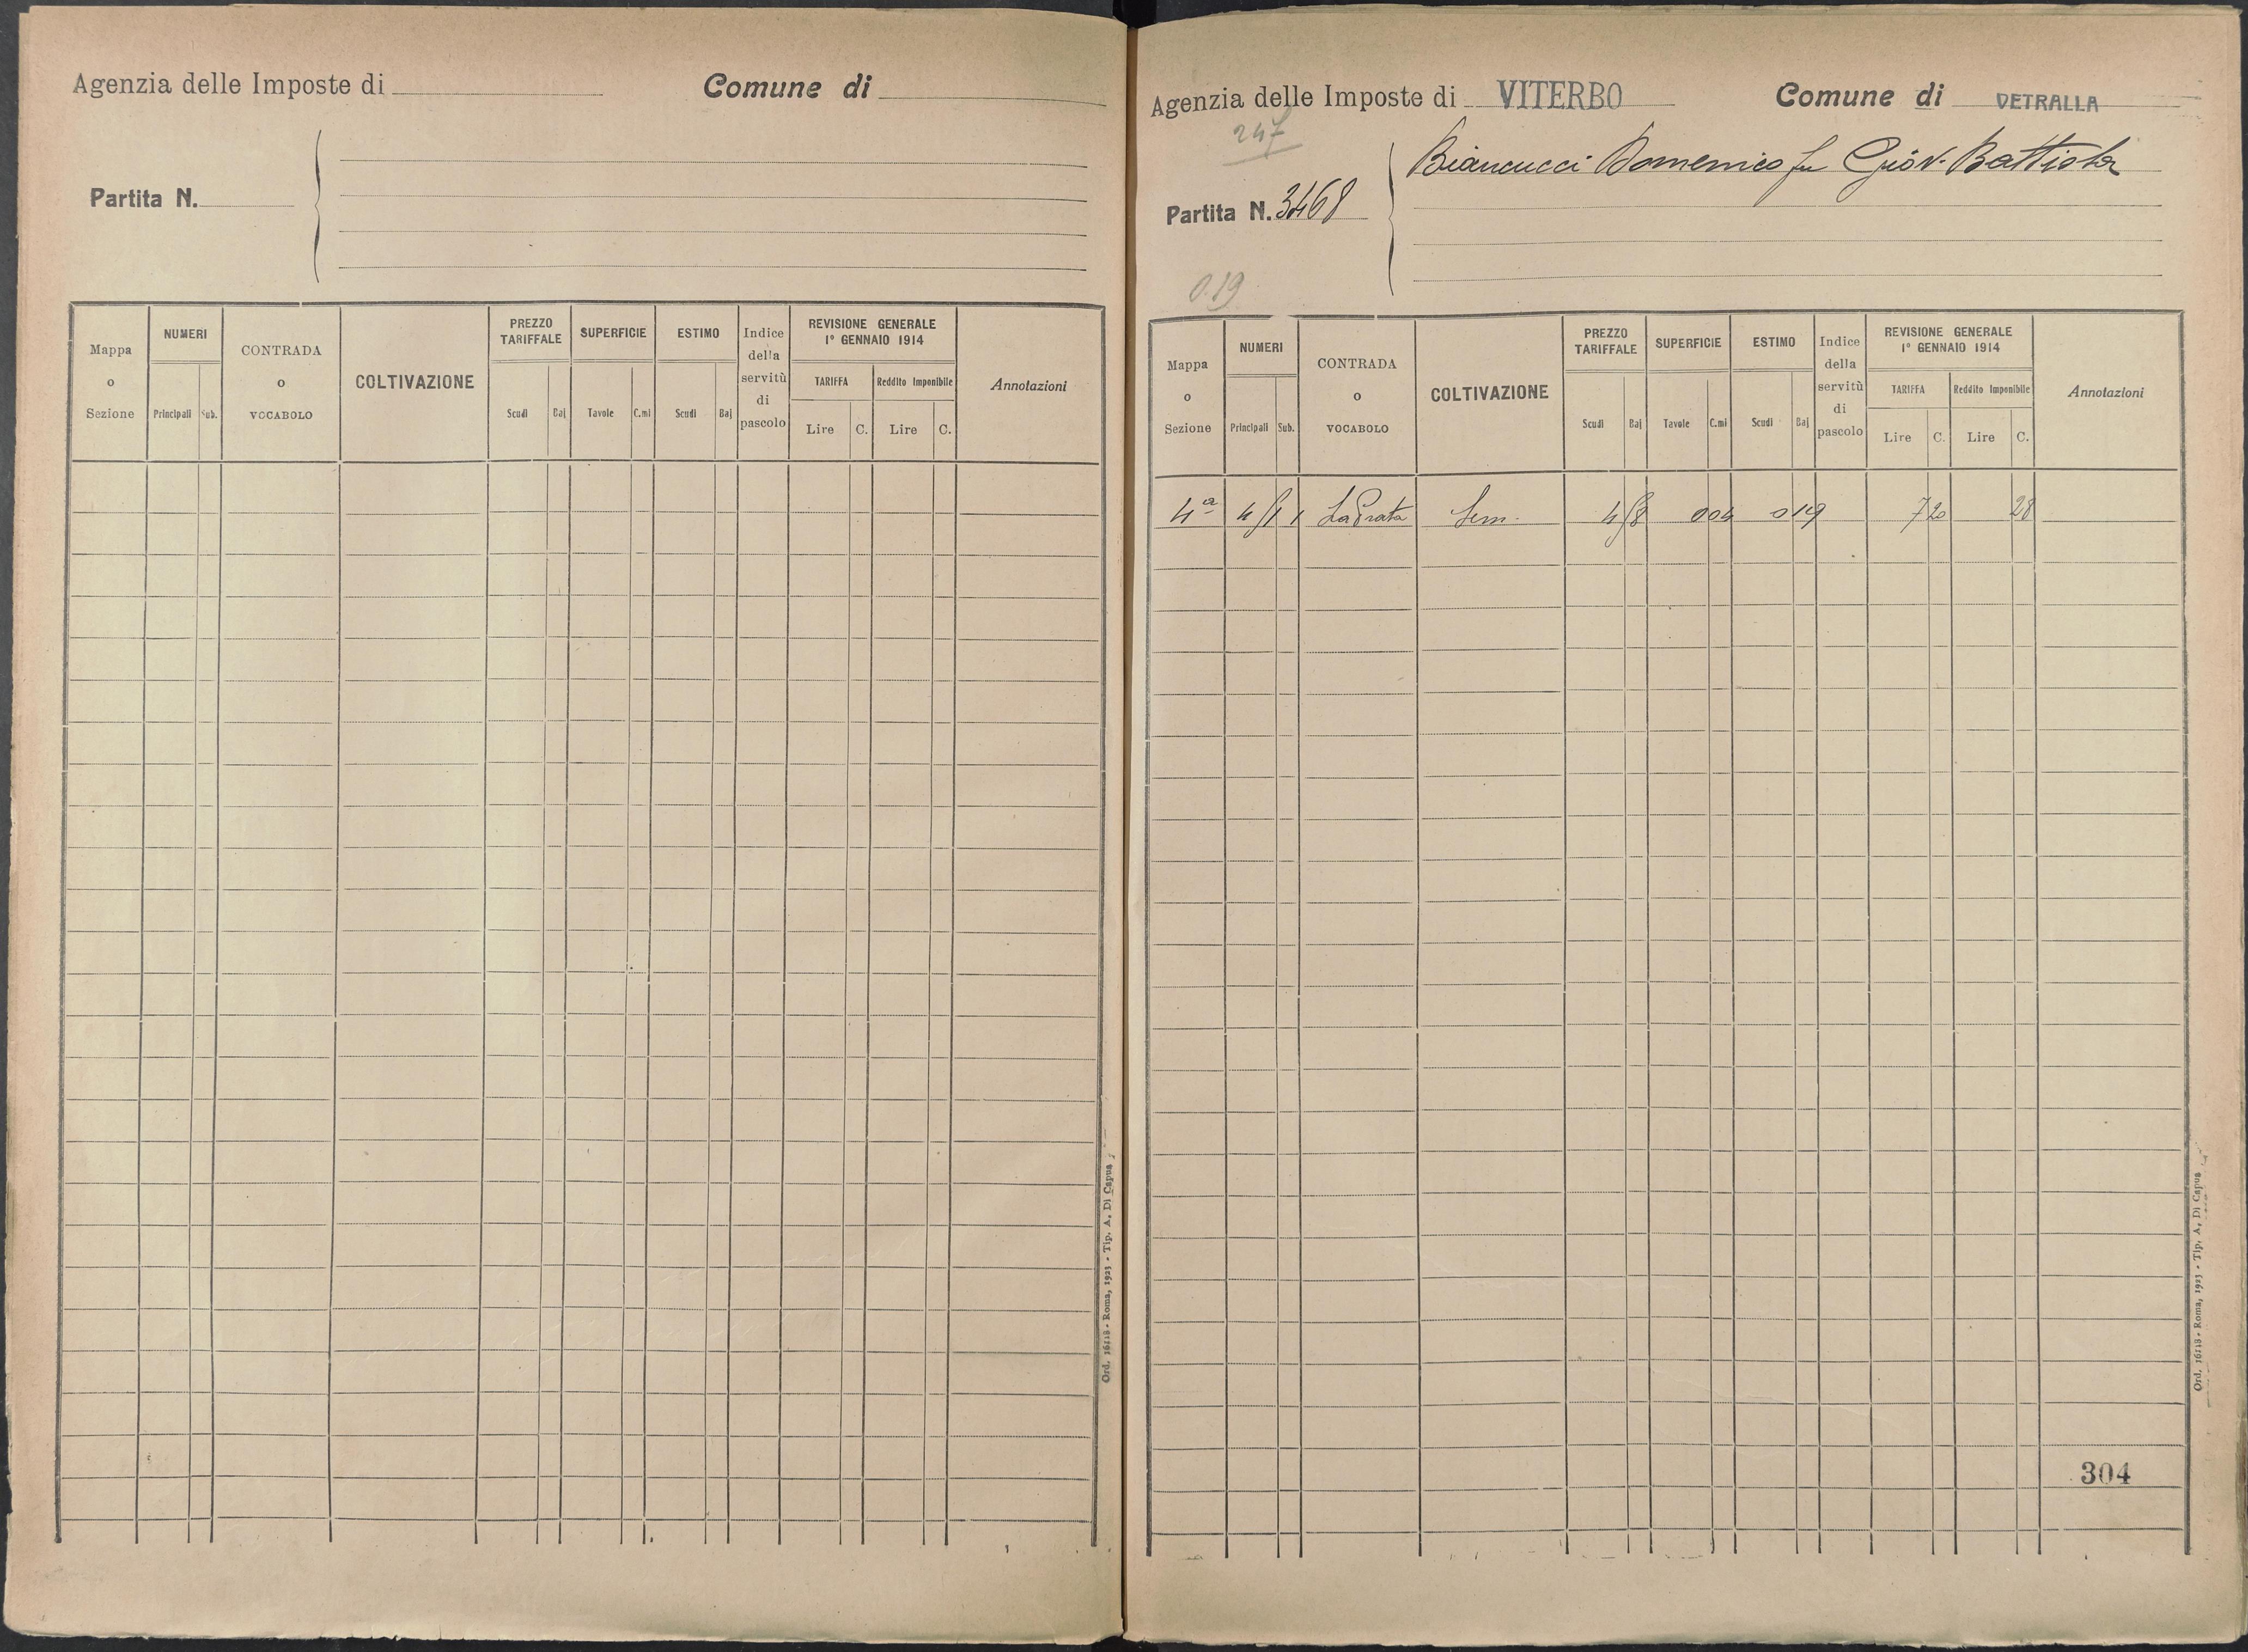 Agenzia delle Imposte di
Comune di
Partita N.
Mappa o Sezione
NUMERI
Principali Sub.
CONTRADA o VOCABOLO
COLTIVAZIONE
PREZZO TARIFFALE
Scudi Baj
SUPERFICIE
Tavole C.mi
ESTIMO
Scudi Baj
Indice della servitù di pascolo
REVISIONE GENERALE
1° GENNAIO 1914
TARIFFA
Lire C.
Reddito Imponibile
Lire C.
Annotazioni
Ord. 16118 - Roma, 1923 - Tip. A. Di Capua
Agenzia delle Imposte di VITERBO
Comune di VETRALLA
247
Partita N. 3468
Biancucci Domenico fu Giov. Battista
0.19
Mappa o Sezione
NUMERI
Principali Sub.
CONTRADA o VOCABOLO
COLTIVAZIONE
PREZZO TARIFFALE
Scudi Baj
SUPERFICIE
Tavole C.mi
ESTIMO
Scudi Baj
Indice della servitù di pascolo
REVISIONE GENERALE
1° GENNAIO 1914
TARIFFA
Lire C.
Reddito Imponibile
Lire C.
Annotazioni
4ª La Prata Sem. 4 58 0 04 0 19 7 20 28
304
Ord. 16118 - Roma, 1923 - Tip. A. Di Capua